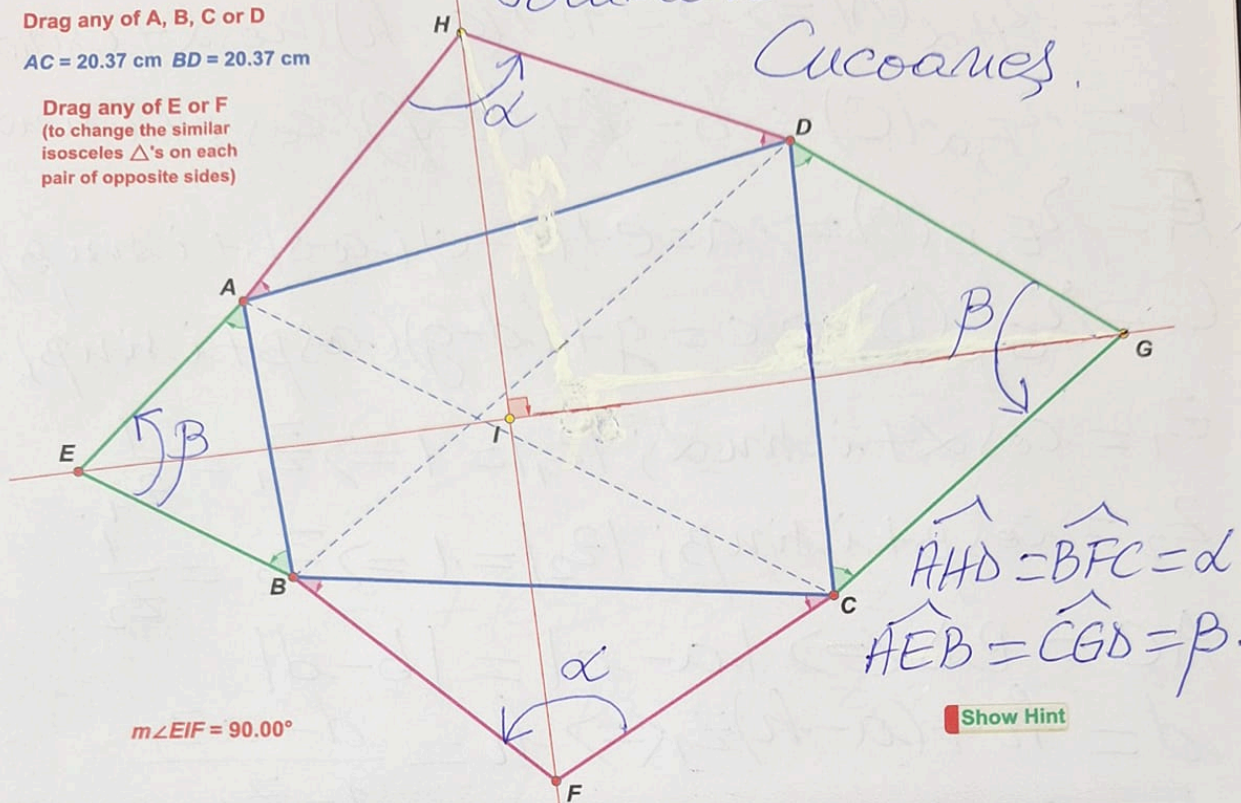 Drag any of A, B, C or D
AC = 20.37 cm BD = 20.37 cm
Drag any of E or F
(to change the similar
isosceles △'s on each
pair of opposite sides)
H
α
D
A
β
G
I
E
β
B
C
AHD = BFC = α
AEB = CGD = β.
α
Show Hint
m∠EIF = 90.00°
F